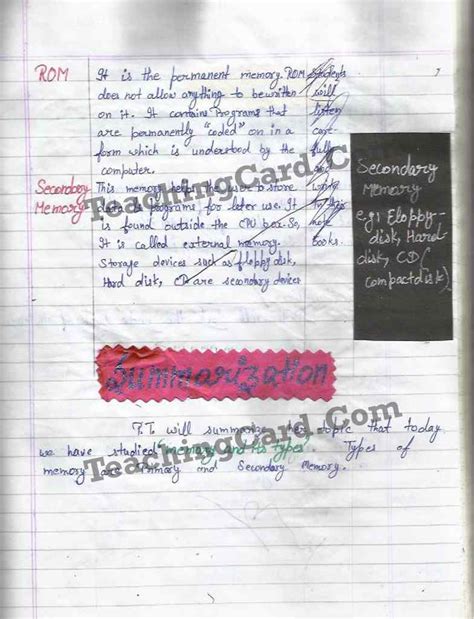 ROM
It is the permanent memory. ROM
does not allow anything to be written
on it. It contains Programs that
are permanently "coded" on in a
form which is understood by the
computer.
Secondary
Memory
This memory helps the user to store
data & programs, for later use. It
is found outside the CPU box. So,
It is called external memory.
Storage devices such as floppy disk,
Hard disk, CD are secondary devices
students
will
listen
care-
fully
write
books.
Secondary
Memory
e.g: Floppy-
disk, Hard
disk, CD (
compactdisk)
TeachingCard.Com
Summarization
P.T. will summarize her topic that today
we have studied "memory and its types". Types of
memory are Primary and Secondary Memory.
TeachingCard.Com